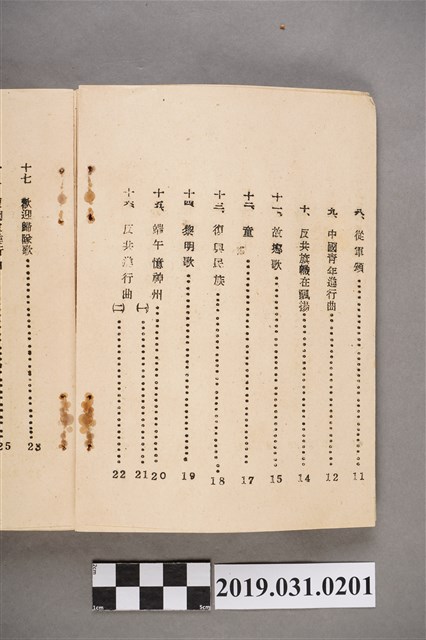 八、從軍頌 11
九、中國青年進行曲 12
十、反共旗幟在飄揚 14
十一、故鄉歌 15
十二、童 17
十三、復興民族 18
十四、黎明歌 19
十五、端午憶神州 20
十六、反共進行曲 (一) 21
(二) 22
十七 歡迎歸隊歌 23
25
2019.031.0201
1cm
5cm